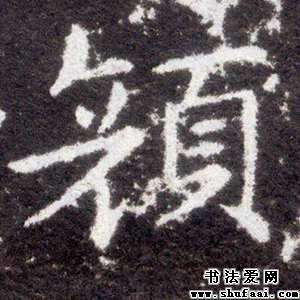 顏
书法爱网
www.shufaai.com